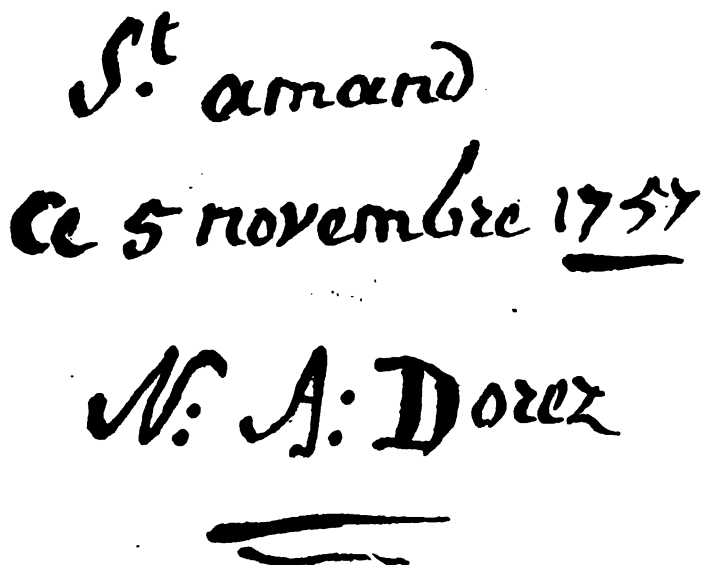 S.t amand
Ce 5 novembre 1757
N: A: Dorez